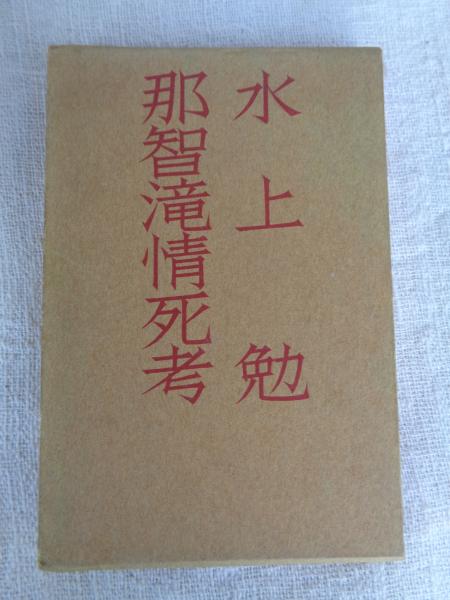 水上勉
那智滝情死考